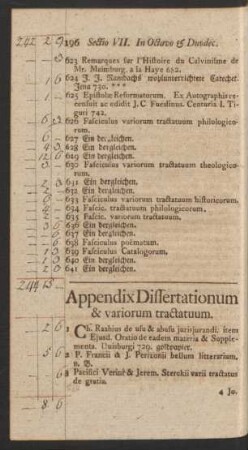 196 Sectio VII. In Octavo & Duodec.
623 Remarques sur l'Histoire du Calvinisme de
Mr. Maimburg. a la Haye 682.
624 J. J. Rambachs wolunterrichteter Catechet.
Jena 730. ***
625 Epistolæ Reformatorum. Ex Autographis re-
censuit ac edidit J. C Fueslinus. Centuria I. Ti-
guri 742.
626 Fasciculus variorum tractatuum philologico-
rum.
627 Ein dergleichen.
628 Ein dergleichen.
629 Ein dergleichen.
630 Fasciculus variorum tractatuum theologico-
rum.
631 Ein dergleichen.
632 Ein dergleichen.
633 Fasciculus variorum tractatuum historicorum.
634 Fascic. tractatuum philologicorum.
635 Fascic. variorum tractatuum.
636 Ein dergleichen.
637 Ein dergleichen.
638 Fasciculus poëmatum.
639 Fasciculus Catalogorum.
640 Ein dergleichen.
641 Ein dergleichen.
Appendix Dissertationum
& variorum tractatuum.
1 Ch. Raahius de usu & abusu jurisjurandi. item
Ejusd. Oratio de eadem materia & Supple-
menta. Duisburgi 729.
2 P. Francii & J. Perizonii bellum litterarium.
3 Pacifici Verini & Jerem. Sterckii varii tractatus
de gratia.
4 Jo.